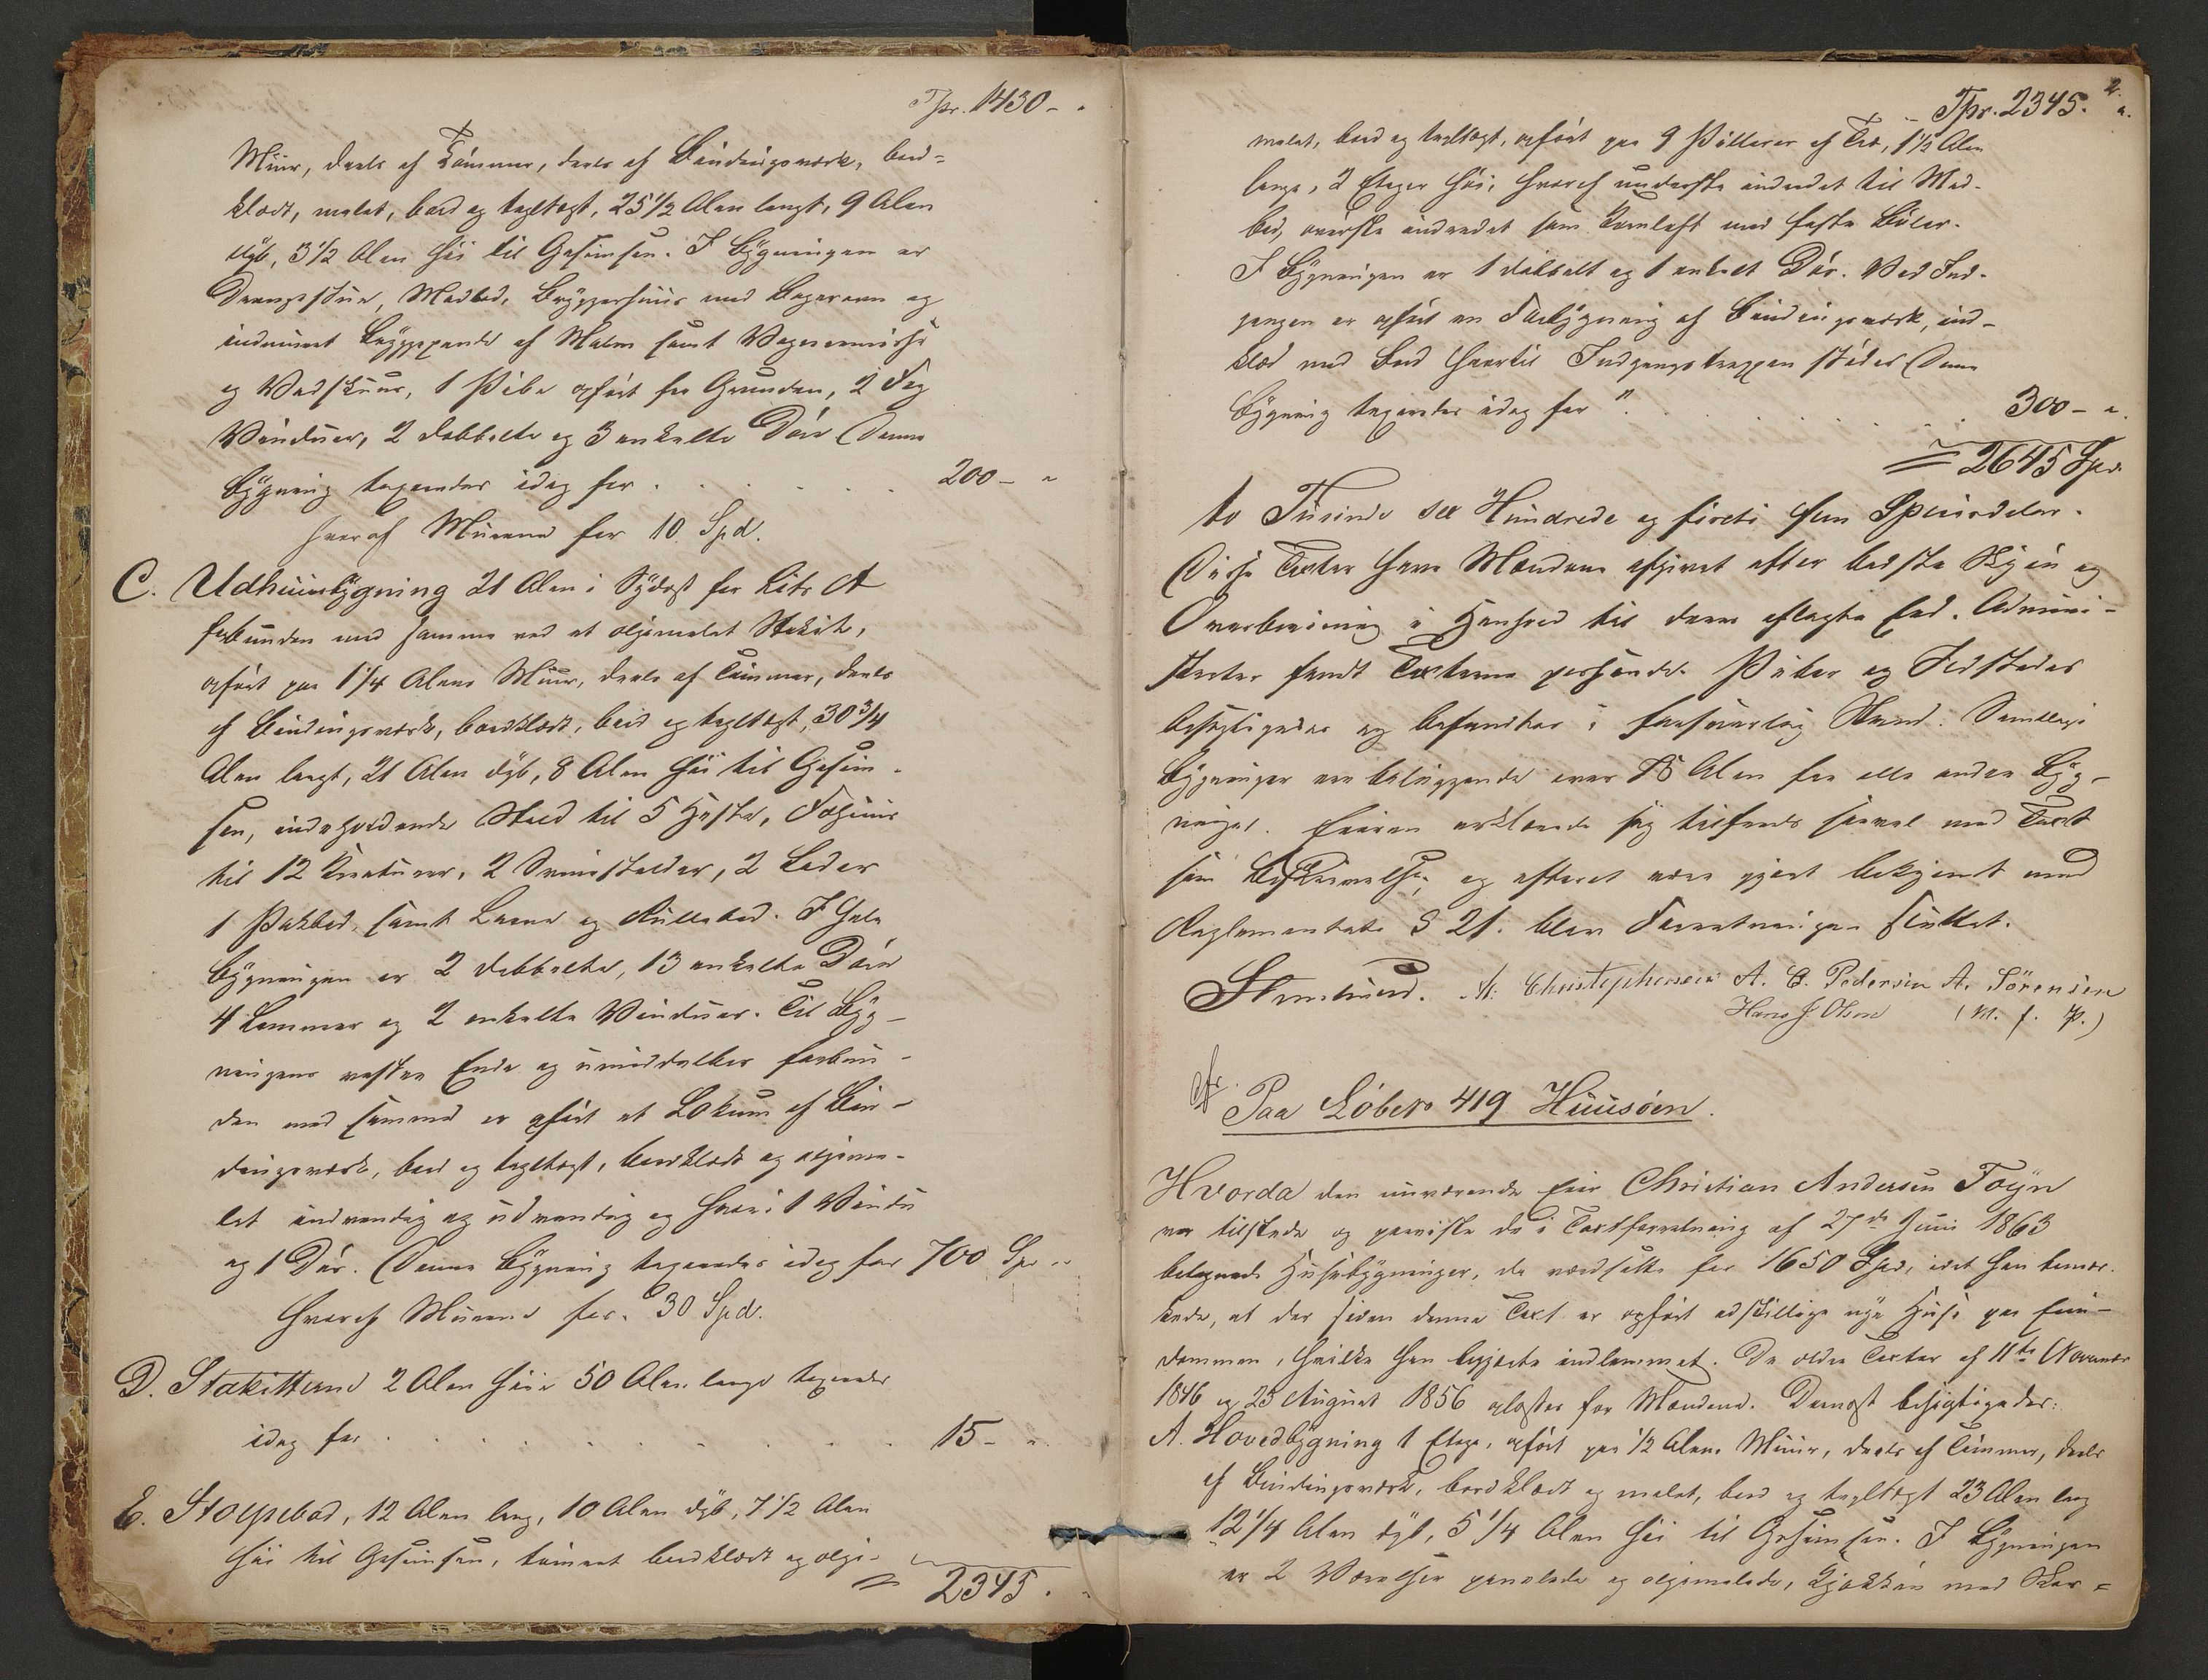 Tpr. 1430 - "
Muur, deels af Tømmer, deels af Bindingsværk, bord-
klædt, malet, bord og tegltægt, 25 1/2 Alen langt, 9 Alen
dyb, 3 1/2 Alen høi til Gesimsen. I Bygningen er
Drengestue, Madbod, Bryggerhuus med Bagerovn og
indmuret Bryggepande af Malm samt
og Vedskuur, 1 Pibe opført fra Grunden, 2 Fag
Vinduer, 2 dobbelte og 3 enkelte Døre. Denne
Bygning taxeredes idag for . . . . . . 200 - "
hvoraf Murene for 10 Spd.
C. Udhuusbygning 21 Alen i Sydost for Litr A
forbunden med samme ved et oljemalet Stakit,
opført paa 1 1/4 Alens Muur, deels af Tømmer, deels
af Bindingsværk, bordklædt, bord og tegltægt, 30 3/4
Alen langt, 21 Alen dyb, 8 Alen høi til Gesim-
sen, indeholdende Stald til 5 Heste, Fæhuus
til 12 Kreaturer, 2 Svinestalder, 2 Lader
1 Pakbod, samt Laave og Rullebod. I hele
Bygningen er 2 dobbelte, 13 enkelte Døre
4 Lemmer og 2 enkelte Vinduer. Til Byg-
ningens vestre Ende og umiddelbar forbun-
den med samme er opført et Lokum af Bin-
dingsværk, bord og tegltægt, bordklædt og oljema-
let indvendig og udvendig og heri 1 Vindu
og 1 Dør. Denne Bygning taxeredes idag for 700 Spd "
hvoraf Murene for 30 Spd.
D. Stakitterne 2 Alen høie 50 Alen lange taxeredes
idag for . . . . . . . . . 15 - "
E. Stolpebod, 12 Alen lang, 10 Alen dyb, 7 1/2 Alen
høi til Gesimsen, tømret bordklædt og olje-
2345. "
2.
Tpr. 2345. "
malet, bord og tegltægt, opført paa 9 Pillarer af Træ, 1 1/2 Alen
lange, 2 Etager høi, hvoraf underste indredet til Mad-
bod, øverste indredet som Kornloft med faste Bøler.
I Bygningen er 1 dobbelt og 1 enkelt Dør. Ved Ind-
gangen er opført en Forbygning af Bindingsværk, ind-
klæd med Bord hvortil Indgangstrappen støder. Denne
Bygning taxeredes idag for ". . . . . . . 300 - "
2645 Spd.
to Tusinde sex Hundrede og fireti fem Speciedaler.
Disse Taxter have Mændene afgivet efter bedste Skjøn og
Overbeviisning i Henhold til deres aflagte Eed. Admini-
strator fandt Taxterne passende. Piber og Ildsteder
besigtigedes og befandtes i forsvarlig Stand. Samtlige
Bygninger ere beliggende over Alen fra alle andre Byg-
ninger. Eieren erklærede sig tilfreds saavel med Taxt
som Beskrivelse, og efterat være gjort bekjendt med
Reglementets § 21. blev Forretningen sluttet.
A. Christophersen A. C. Pedersen A. Sørensen
Hans J. Olsen (m. f. P.)
Paa Løbetr 419 Huusøen.
Hvorda den nuværende Eier Christian Andersen Foyn
var tilstede og paaviste de i Taxtforretning af 27de Juni 1863
betegnede Husebygninger, da værdsatte for 1650 Spd, idet han bemær-
kede, at der siden denne Taxt er opført adskillige nye Huse paa Eien-
dommen, hvilke han begjærte indlemmet. De ældre Taxter af 11te November
1846 og 25 August 1856 oplæstes for Mændene. Dernæst besigtigedes:
A. Hovedbygning 1 Etage, opført paa 1/2 Alens Muur, deels af Tømmer, deels
af Bindingsværk, bordklædt og malet, bord og tegltægt 23 Alen lang
12 1/4 Alen dyb, 5 1/4 Alen høi til Gesimsen. I Bygningen
er 2 Værelser panelede og oljemalede, Kjøkken med Skor-